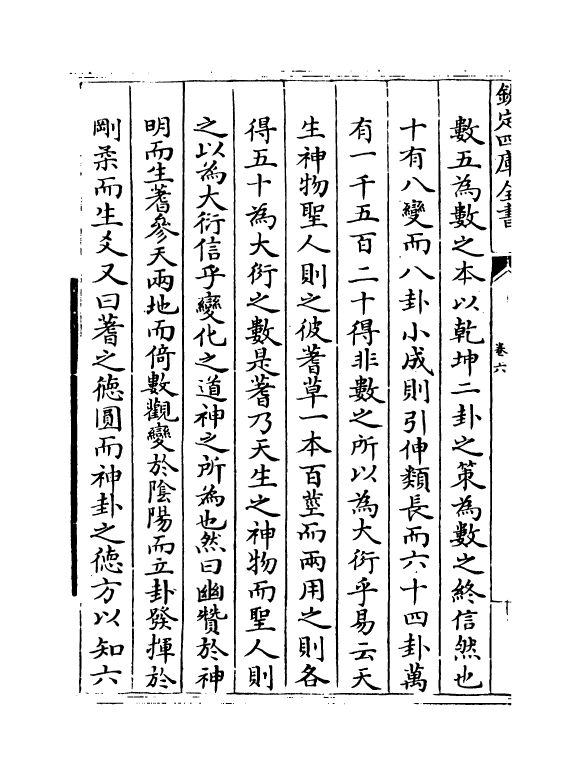 欽定四庫全書
卷六
數五為數之本以乾坤二卦之策為數之終信然也
十有八變而八卦小成則引伸類長而六十四卦萬
有一千五百二十得非數之所以為大衍乎易云天
生神物聖人則之彼蓍草一本百莖而兩用之則各
得五十為大衍之數是蓍乃天生之神物而聖人則
之以為大衍信乎變化之道神之所為也然曰幽贊於神
明而生蓍參天兩地而倚數觀變於隂陽而立卦發揮於
剛柔而生爻又曰蓍之徳圓而神卦之徳方以知六